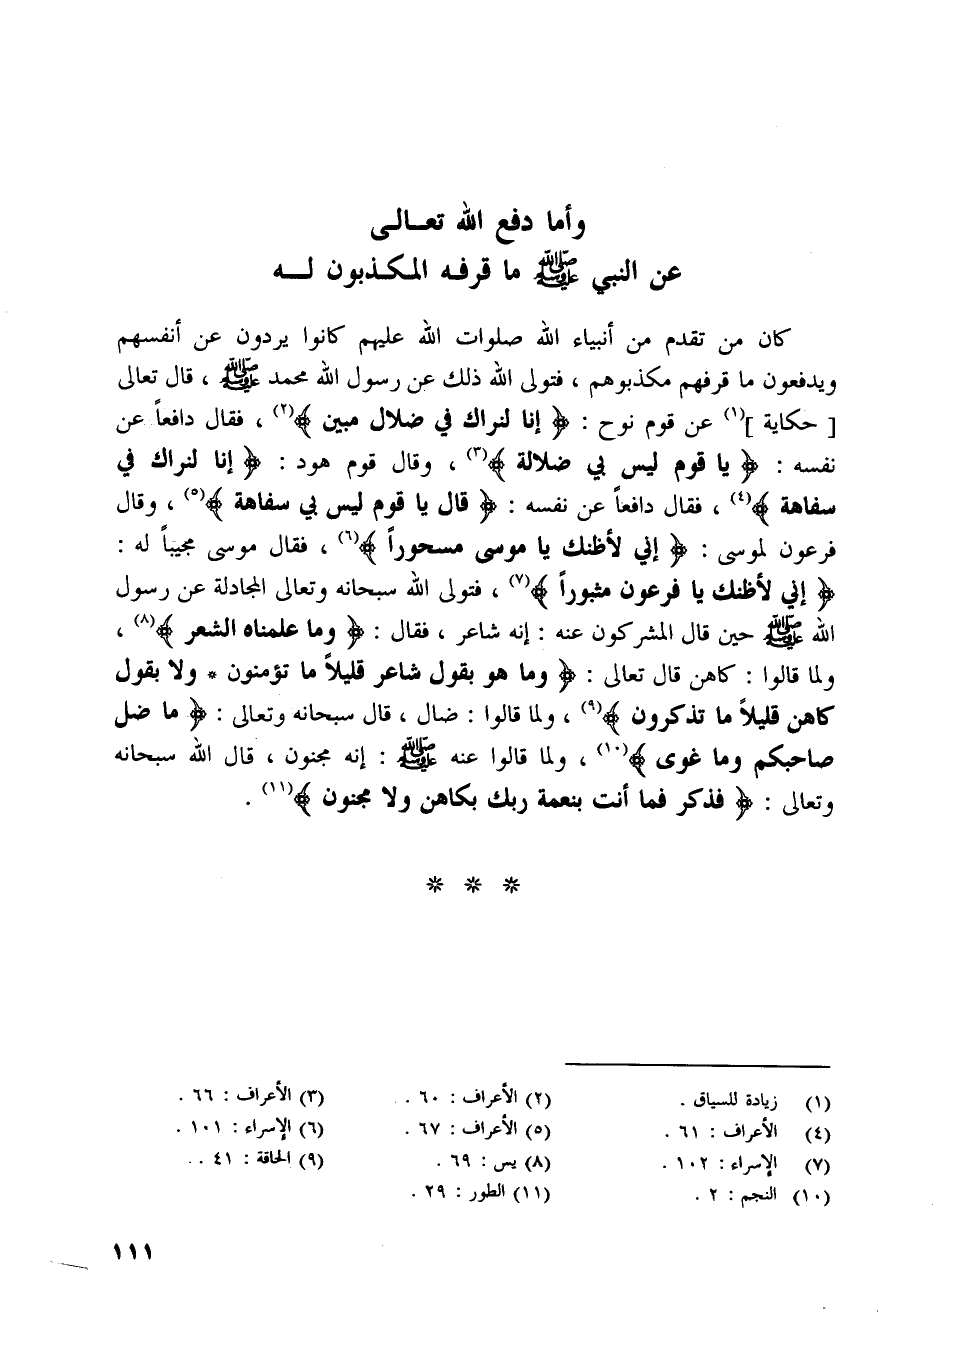 وأما دفع الله تعـالـى
عن النبي ﷺ ما قرفـه المـكـذبون لـــه
كان من تقدم من أنبياء الله صلوات الله عليهم كانوا يردون عن أنفسهم
ويدفعون ما قرفهم مكذبوهم ، فتولى الله ذلك عن رسول الله محمد ﷺ ، قال تعالى
[ حكاية ](١) عن قوم نوح : ﴿ إنا لنراك في ضلال مبين ﴾(٢) ، فقال دافعاً عن
نفسه : ﴿ يا قوم ليس بي ضلالة ﴾(٣) ، وقال قوم هود : ﴿ إنا لنراك في
سفاهة ﴾(٤) ، فقال دافعاً عن نفسه : ﴿ قال يا قوم ليس بي سفاهة ﴾(٥) ، وقال
فرعون لموسى : ﴿ إني لأظنك يا موسى مسحوراً ﴾(٦) ، فقال موسى مجيباً له :
﴿ إني لأظنك يا فرعون مثبوراً ﴾(٧) ، فتولى الله سبحانه وتعالى المجادلة عن رسول
الله ﷺ حين قال المشركون عنه : إنه شاعر ، فقال : ﴿ وما علمناه الشعر ﴾(٨) ،
ولما قالوا : كاهن قال تعالى : ﴿ وما هو بقول شاعر قليلاً ما تؤمنون * ولا بقول
كاهن قليلاً ما تذكرون ﴾(٩) ، ولما قالوا : ضال ، قال سبحانه وتعالى : ﴿ ما ضل
صاحبكم وما غوى ﴾(١٠) ، ولما قالوا عنه ﷺ : إنه مجنون ، قال الله سبحانه
وتعالى : ﴿ فذكر فما أنت بنعمة ربك بكاهن ولا مجنون ﴾(١١) .
* * *
(١) زيادة للسياق . (٢) الأعراف : ٦٠ . (٣) الأعراف : ٦٦ .
(٤) الأعراف : ٦١ . (٥) الأعراف : ٦٧ . (٦) الإسراء : ١٠١ .
(٧) الإسراء : ١٠٢ . (٨) يس : ٦٩ . (٩) الحاقة : ٤١ . .
(١٠) النجم : ٢ . (١١) الطور : ٢٩ .
١١١